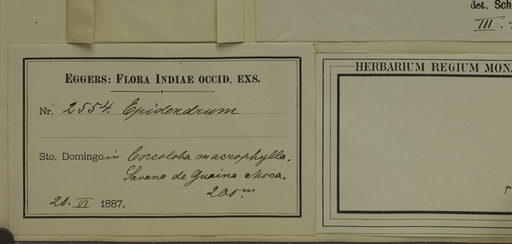 det. Sch
III.
EGGERS: FLORA INDIAE OCCID. EXS.
Nr. 2554. Epidendrum
Sto. Domingo in Coccoloba macrophylla.
Savana de Guaina Moca.
200m
20. VI 1887.
HERBARIUM REGIUM MONA